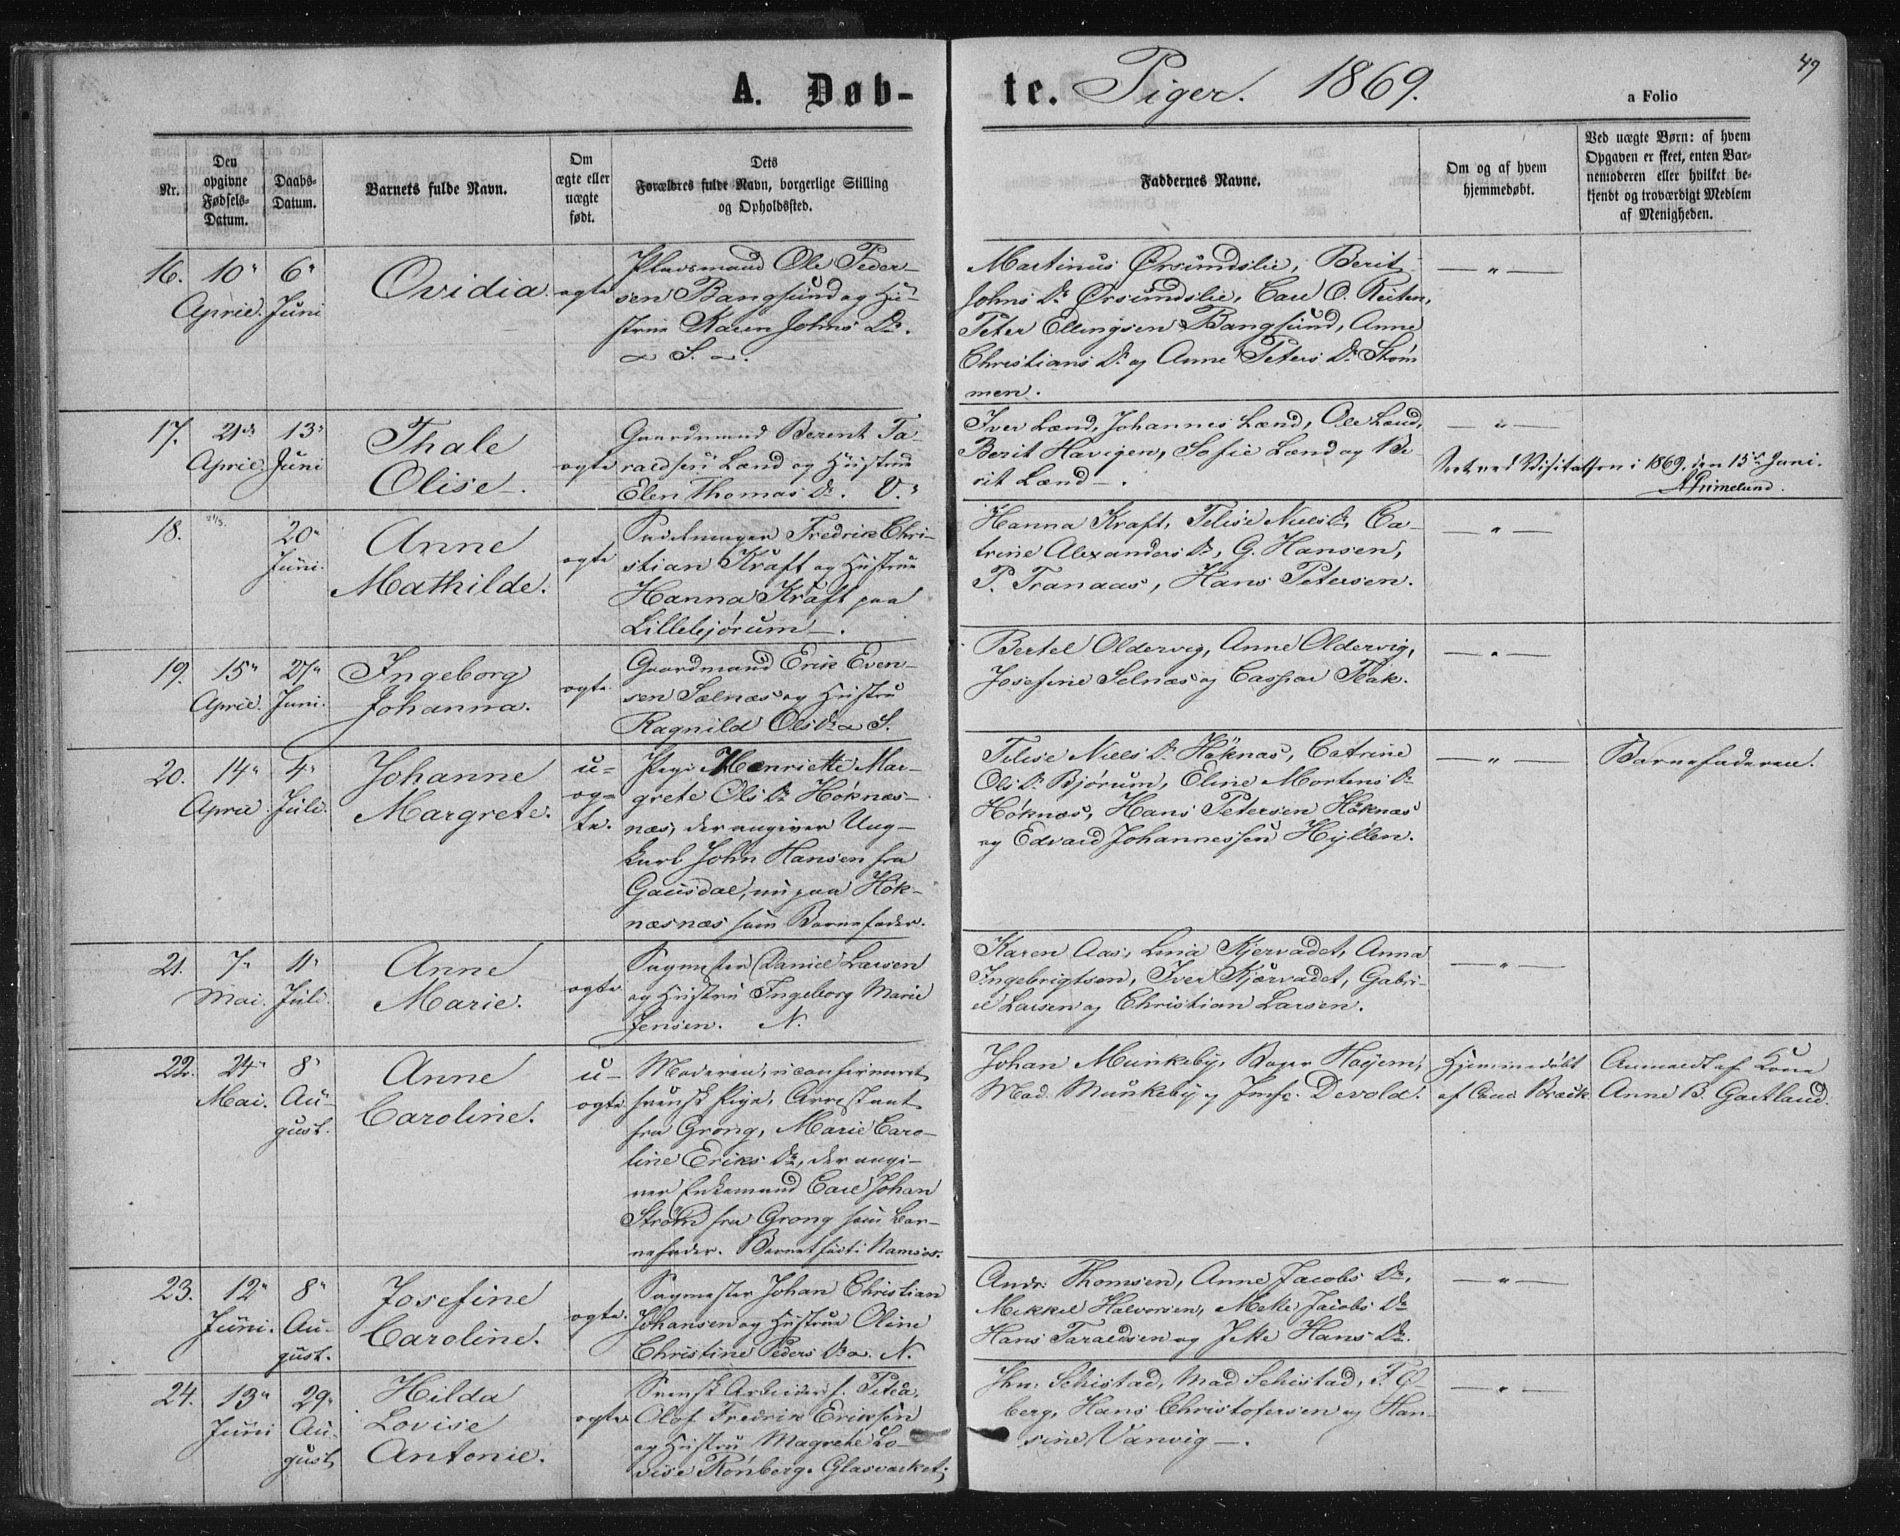 A. Døb-te. Piger. 1869.
49
a Folio
Nr.
Den opgivne Fødsels-Datum.
Daabs-Datum.
Barnets fulde Navn.
Om ægte eller uægte født.
Dets Forældres fulde Navn, borgerlige Stilling og Opholdssted.
Faddernes Navne.
Om og af hvem hjemmedøbt.
Ved uægte Børn: af hvem Opgaven er skeet, enten Barnemoderen eller hvilket bekjendt og troværdigt Medlem af Menigheden.
16. 10" April. 6" Juni
Ovidia.
ægte
Pladsmand Ole Peder-
sen Bangsund og Hu-
strue Karen Johns Dr.
S.
Martinus Ørsundslie, Berit
Johns Dr Ørsundslie, Carl O. Reiten,
Peter Ellingsen Bangsund, Anne
Christians Dr og Anne Peters Dr Strøm
men.
— " —
17. 21de April. 13" Juni
Thale
Olise.
ægte
Gaardmand Berent Ta-
raldsen Lænd og Hustrue
Elen Thomas Dr. V.
Iver Lænd, Johannes Lænd, Ole Lænd,
Berit Havigen, Sofie Lænd og Be
rit Lænd.
— " —
Seet ved Visitatsen i 1869, den 15de Juni.
A Grimelund.
18. 21/3. 20" Juni.
Anne
Mathilde.
ægte
Sadelmager Fredrik Chri-
stian Kraft og Hustrue
Hanna Kraft paa
Lillebjørum.
Hanna Kraft, Telise Niels Dr, Ca-
trine Alexanders Dr, G. Hansen,
P. Tranaas, Hans Petersen.
— " —
19. 15" April. 27" Juni.
Ingeborg
Johanna.
ægte.
Gaardmand Erik Even-
sen Sælnæs og Hustru
Ragnild Ols Dr S.
Bertel Oldervig, Anne Oldervig,
Josefine Selnæs og Caspar Flak.
— " —
20. 14" April. 4" Juli.
Johanne
Margrete.
u-
æg-
te.
Pige Henriette Mar-
grete Ols Dr Høknæs-
næs, der angiver Ung-
karl John Hansen fra
Gausdal, nu paa Høk-
næsnæs som Barnefader.
Telise Niels Dr Høknæs, Catrine
Ols Dr Bjørum, Eline Mortens Dr
Høknæs, Hans Petersen Høknæs
og Edvard Johannessen Hyllen.
— " —
Barnefaderen.
21. 7" Mai. 11" Juli.
Anne
Marie.
ægte
Sagmester Daniel Larsen
og Hustru Ingeborg Marie
Jensen. N.
Karen Aas, Lina Kjervadet, Anna
Ingebrigtsen, Iver Kjærvadet, Gabri-
el Larsen og Christian Larsen.
— " —
22. 24" Mai. 8" Au-
gust.
Anne
Caroline.
u-
ægte
Moderen, uconfirmeret
svensk Pige, Arrestant
fra Grong, Marie Caro-
line Eriks Dr, der angi-
ver Enkemand Carl Johan
Strøm fra Grong som Bar-
nefader. Barnet født i Namsos.
Johan Munkeby, Bager Høyem,
Mad. Munkeby og Jmfr. Devold.
Hjemmedøbt
af Cand. Bræck
Anmeldt af Kone
Anne B. Gartland.
23. 12" Juni. 8" Au-
gust.
Josefine
Caroline.
ægte.
Sagmester Johan Christian
Johansen og Hustrue Oline
Christine Peders Dr N.
Andr: Thomsen, Anne Jacobs Dr,
Mekkel Halvorsen, Mette Jacobs Dr
Hans Taraldsen og Jette Hans Dr.
— " —
24. 13" Juni 29" Au-
gust,
Hilda
Lovise
Antonie.
ægte
Svensk Arbeider
Olof Fredrik Eriksen
og Hustru Magrete Lo-
vise Rønberg. Glasværket;
Jhn: Schistad, Mad Schistad,
berg, Hans Christofersen og Han-
sine Vanvig.
— " —